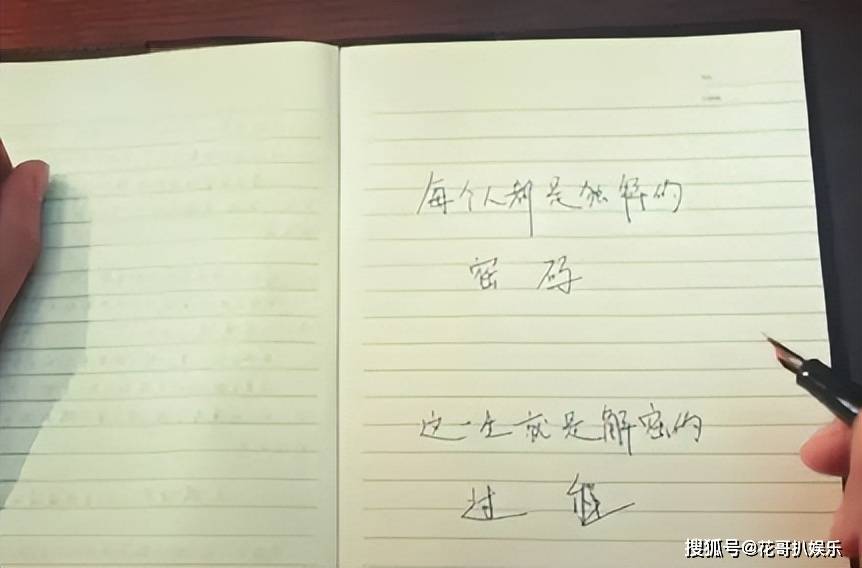 每个人都是独的
密码
这一生就是解密的
过
搜狐号@花哥扒娱乐